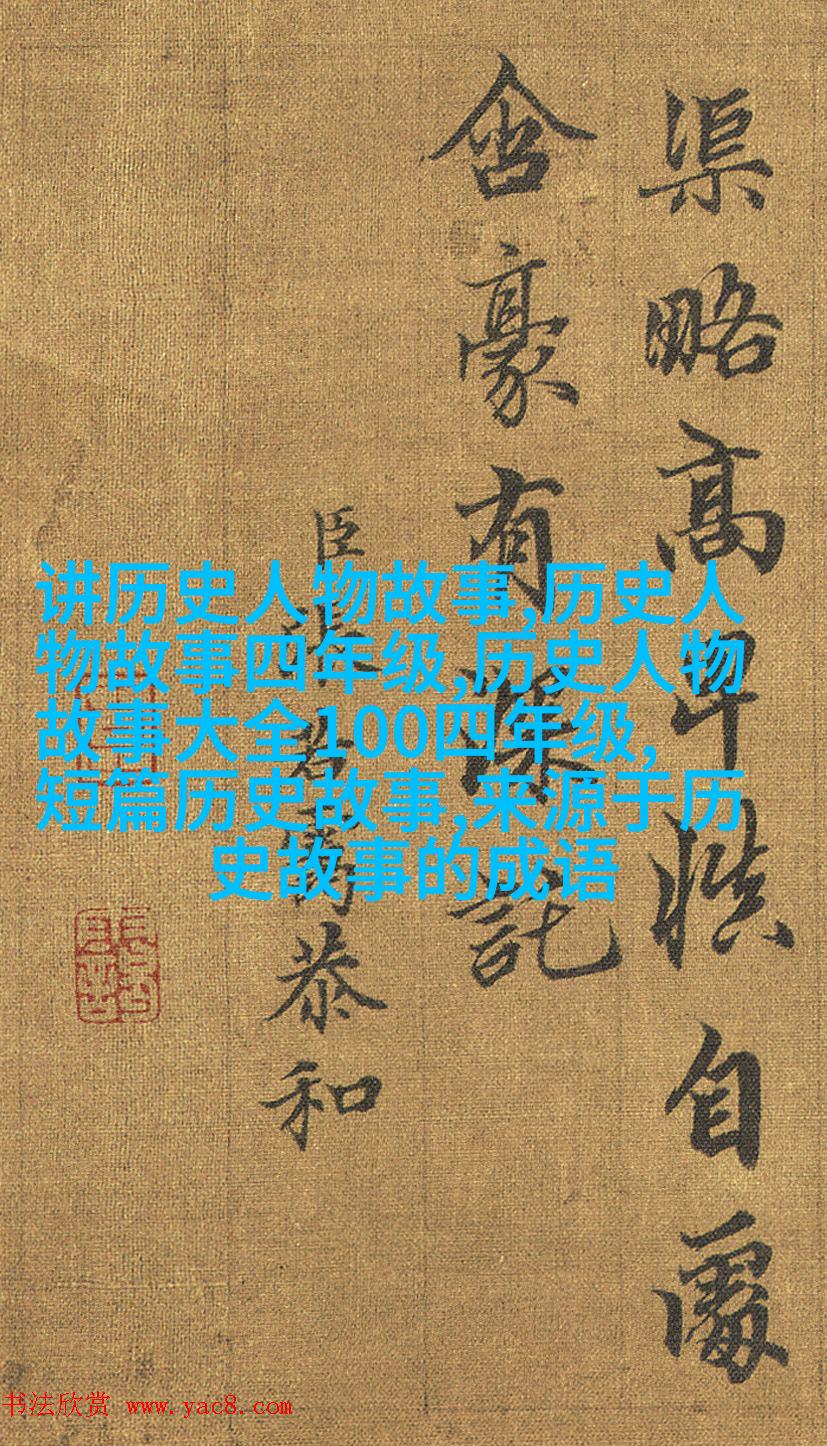 渠略高卑慎自處
含豪有深託
臣張若靄恭和
讲历史人物故事,历史人
物故事四年级,历史人物
故事大全100四年级,
短篇历史故事,来源于历
史故事的成语
书法欣赏 www.yac8.com